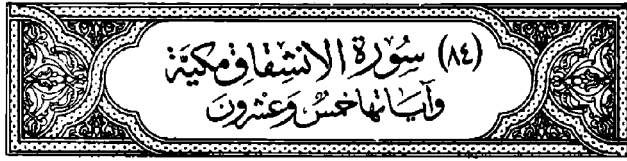 (٨٤) سُورَة الانشقاق مكيّة
وآياتها خمسٌ وَعشرون